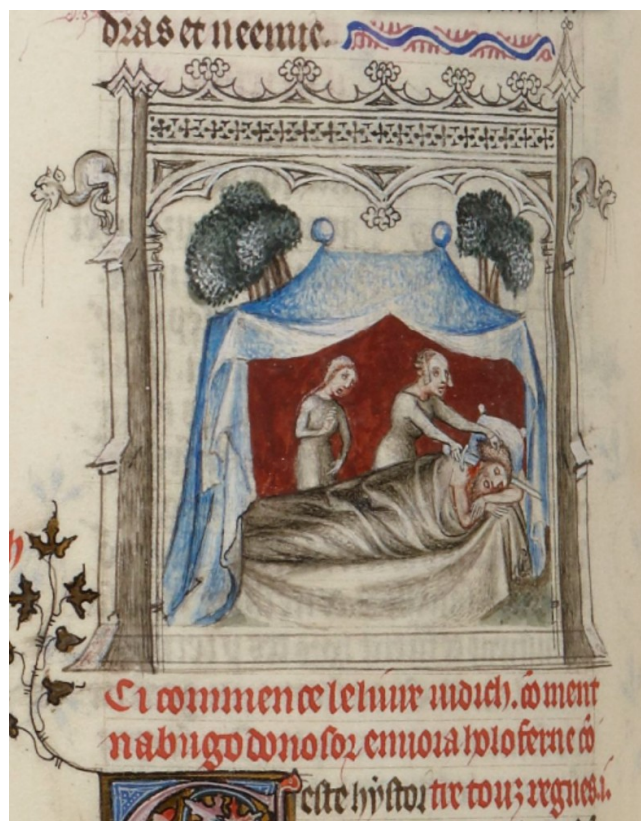 dras et neemie.
Ci commence le liure iudich. coment
nabugodonosor enuoia holoferne co
ceste hystoire touz regnes.i.